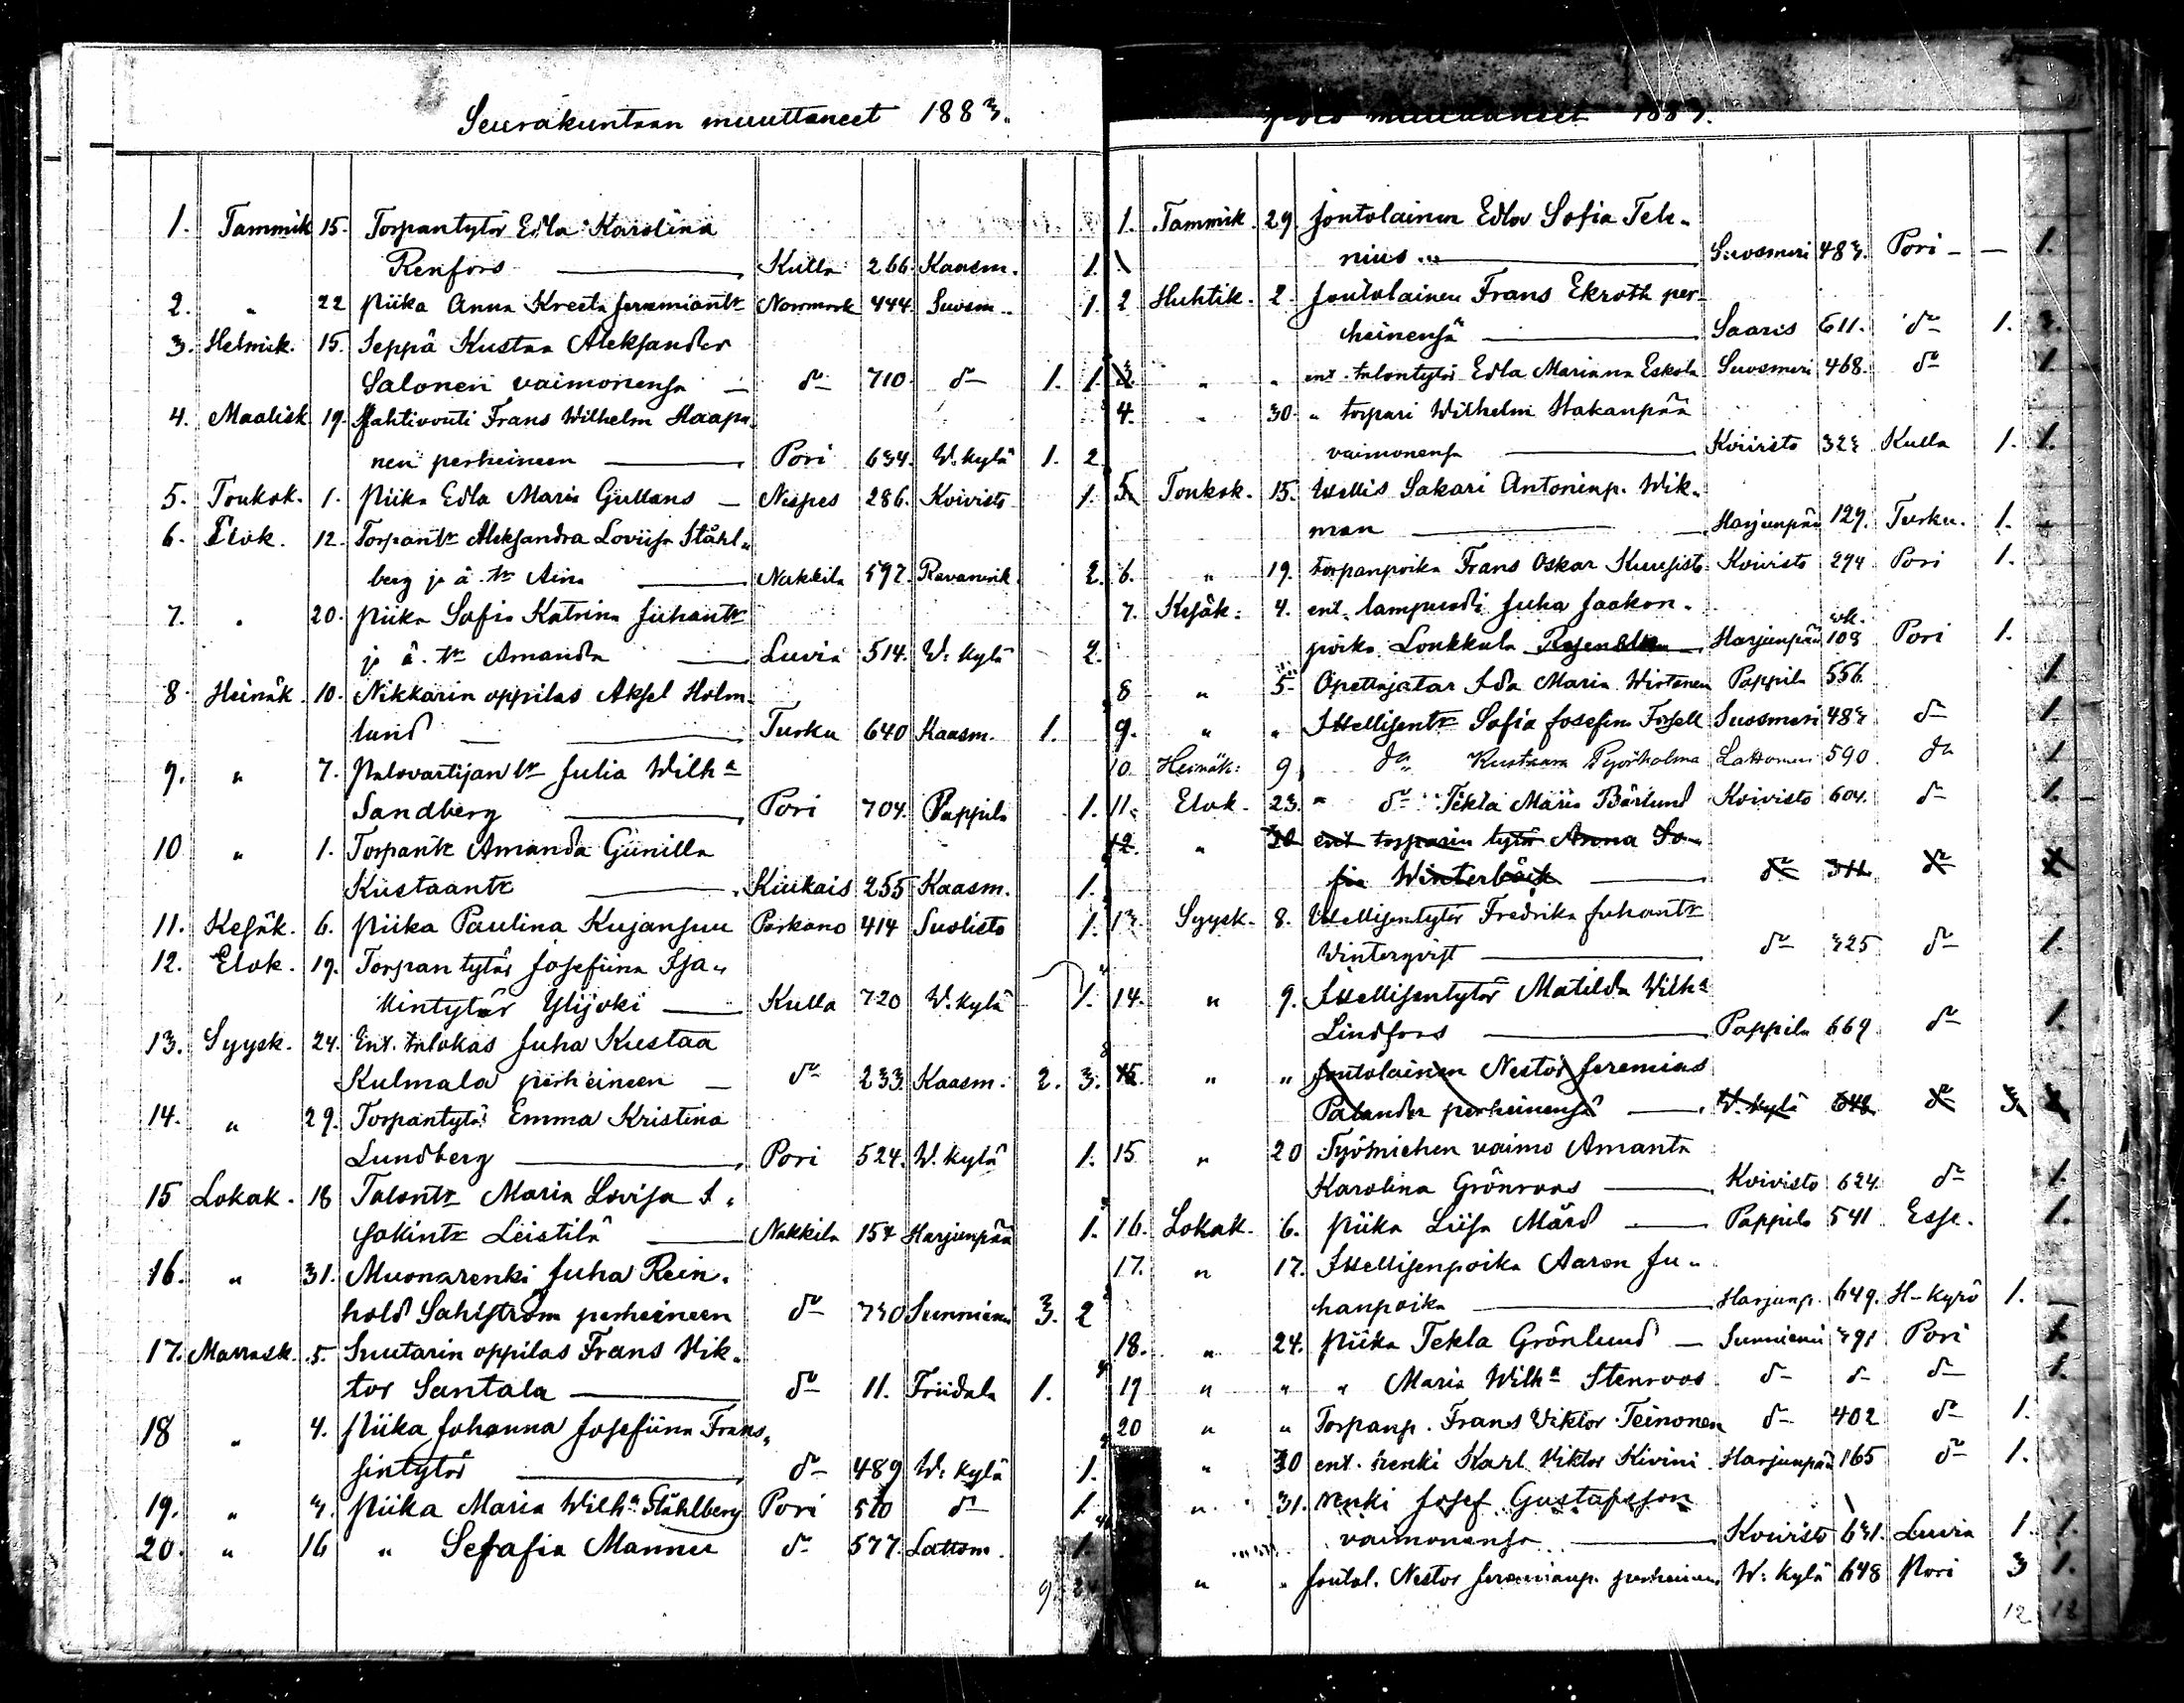 Seurakuntaan muuttaneet 1883.
1. Tammik 15. Torpantytär Edla Karolina
Renfors — Kulla 266. Kaasm. 1.
2. " 22 Piika Anna Kreeta Jeremiantr Norrmark 444. Suosm. 1.
3. Helmik. 15. Seppä Kustaa Aleksander
Salonen vaimonensa — do 710. do 1. 1.
4. Maalisk 19. Frans Wilhelm Haapa-
nen perheineen — Pori 634. W. kylä 1. 2.
5. Toukok. 1. Piika Edla Maria Gullans — 286. Koivisto 1.
6. Elok. 12. Torpantr Aleksandra Loviisa Ståhl-
berg ja ä. tr Aina — Nakkila 597. Ravanink. 2.
7. " 20. Piika Sofia Katrina Juhantr
ja ä. tr Amanda — Luvia 514. W. kylä 2.
8. Heinäk. 10. Nikkarin oppilas Aksel Holm-
lund — Turku 640 Kaasm. 1.
9. " 7. Palovartijan tr Julia Wilha
Sandberg — Pori 704. Pappila 1.
10 " 1. Torpantr Amanda Gunilla
Kustaantr — Kiukais 255 Kaasm. 1.
11. Kesäk. 6. Piika Paulina Kujansuu Parkano 414 Suolisto 1.
12. Elok. 19. Torpantytär Josefiina Isja-
kintytär Ylijoki — Kulla 720 W. kylä 1.
13. Syysk. 24. Ent. talokas Juha Kustaa
Kulmala perheineen — do 233. Kaasm. 2. 3.
14. " 29. Torpantytär Emma Kristina
Lundberg — Pori 524. W. kylä 1.
15 Lokak. 18 Talontr Maria Lovisa I-
sakintr Leistilä — Nakkila 154 Harjunpää 1.
16. " 31. Muonarenki Juha Rein-
hold Sahlström perheineen do 730 Sunniemi 3. 2
17. Marrask. 5. Suutarin oppilas Frans Vik-
tor Santala — do 11. Friidala 1.
18 " 4. Piika Johanna Josefiina Frans-
sintytär — do 489 W. kylä 1.
19. " Piika Maria Wilha Ståhlberg Pori 510 do 1.
20. " 16 " Serafia Mannu do 577. Lattom. 1.
9.
muuttaneet 1883.
1. Tammik. 29. Itsetolainen Edla Sofia Tele-
nius — Suosmeri 483. Pori — — 1.
2 Huhtik. 2. Frans Ekroth per-
heinensä — Saaris 611. do 1. 3.
3. " " ent. talontytär Edla Mariana Eskola Suosmeri 468. do 1.
4. " 30. " torpari Wilhelm Hakanpää
vaimonensa — Koivisto 323 Kulla 1. 1.
5. Toukok. 15. Itsellis Sakari Antoninp. Wik-
man — Harjunpää 129. Turku. 1.
6. " 19. torpanpoika Frans Oskar Kuusisto Koivisto 294 Pori 1.
7. Kesäk. 4. ent. lampuodi Juha Jaakon-
poika Loukkula — Harjunpää 108 Pori 1.
8 " 5. Opettajatar Ida Maria Wirtanen Pappila 556. 1.
9. " " Itsellisentr Sofia Josefina Forsell Suosmeri 483 do 1.
10. Heinäk. 9 do Kustaava Pyöriholma Lattomeri 590. do 1
11. Elok. 23. " do Tekla Maria Bärlund Koivisto 604. do 1.
12. " 30 ent torparin tytär Anna So-
fia Winterbäck — do 311 do 1
13. Syysk. 8. Itsellisentytär Fredrika Juhantr
Winterqvist — do 325 do 1.
14. " 9. Itsellisentytär Matilda Wilha
Lindfors — Pappila 669 do 1.
15. " " Nestor Jeremias
Palander perheinensä — W. kylä 648 do 3. 1.
15 " 20 Työmiehen vaimo Amanta
Karolina Grönroos — Koivisto 624. do 1.
16. Lokak. 6. Piika Liisa Mård — Pappila 541 Esse. 1.
17. " 17. Itsellisenpoika Aaron Ju-
hanpoika — Harjunp. 649. H-kyrö 1.
18. " 24. Piika Tekla Grönlund — Sunniemi 391 Pori 1.
19 " " " Maria Wilha Stenroos do do do 1.
20 " " Torpanp. Frans Viktor Teinonen do 402 do 1.
" 30 ent. renki Karl Viktor Kivini Harjunpää 165 do 1.
" 31. renki Josef Gustafsson
vaimonensa — Koivisto 631. Luvia 1. 1.
" " Nestor Jeremianp. perheinens W. kylä 648 Pori 3 1.
12. 18